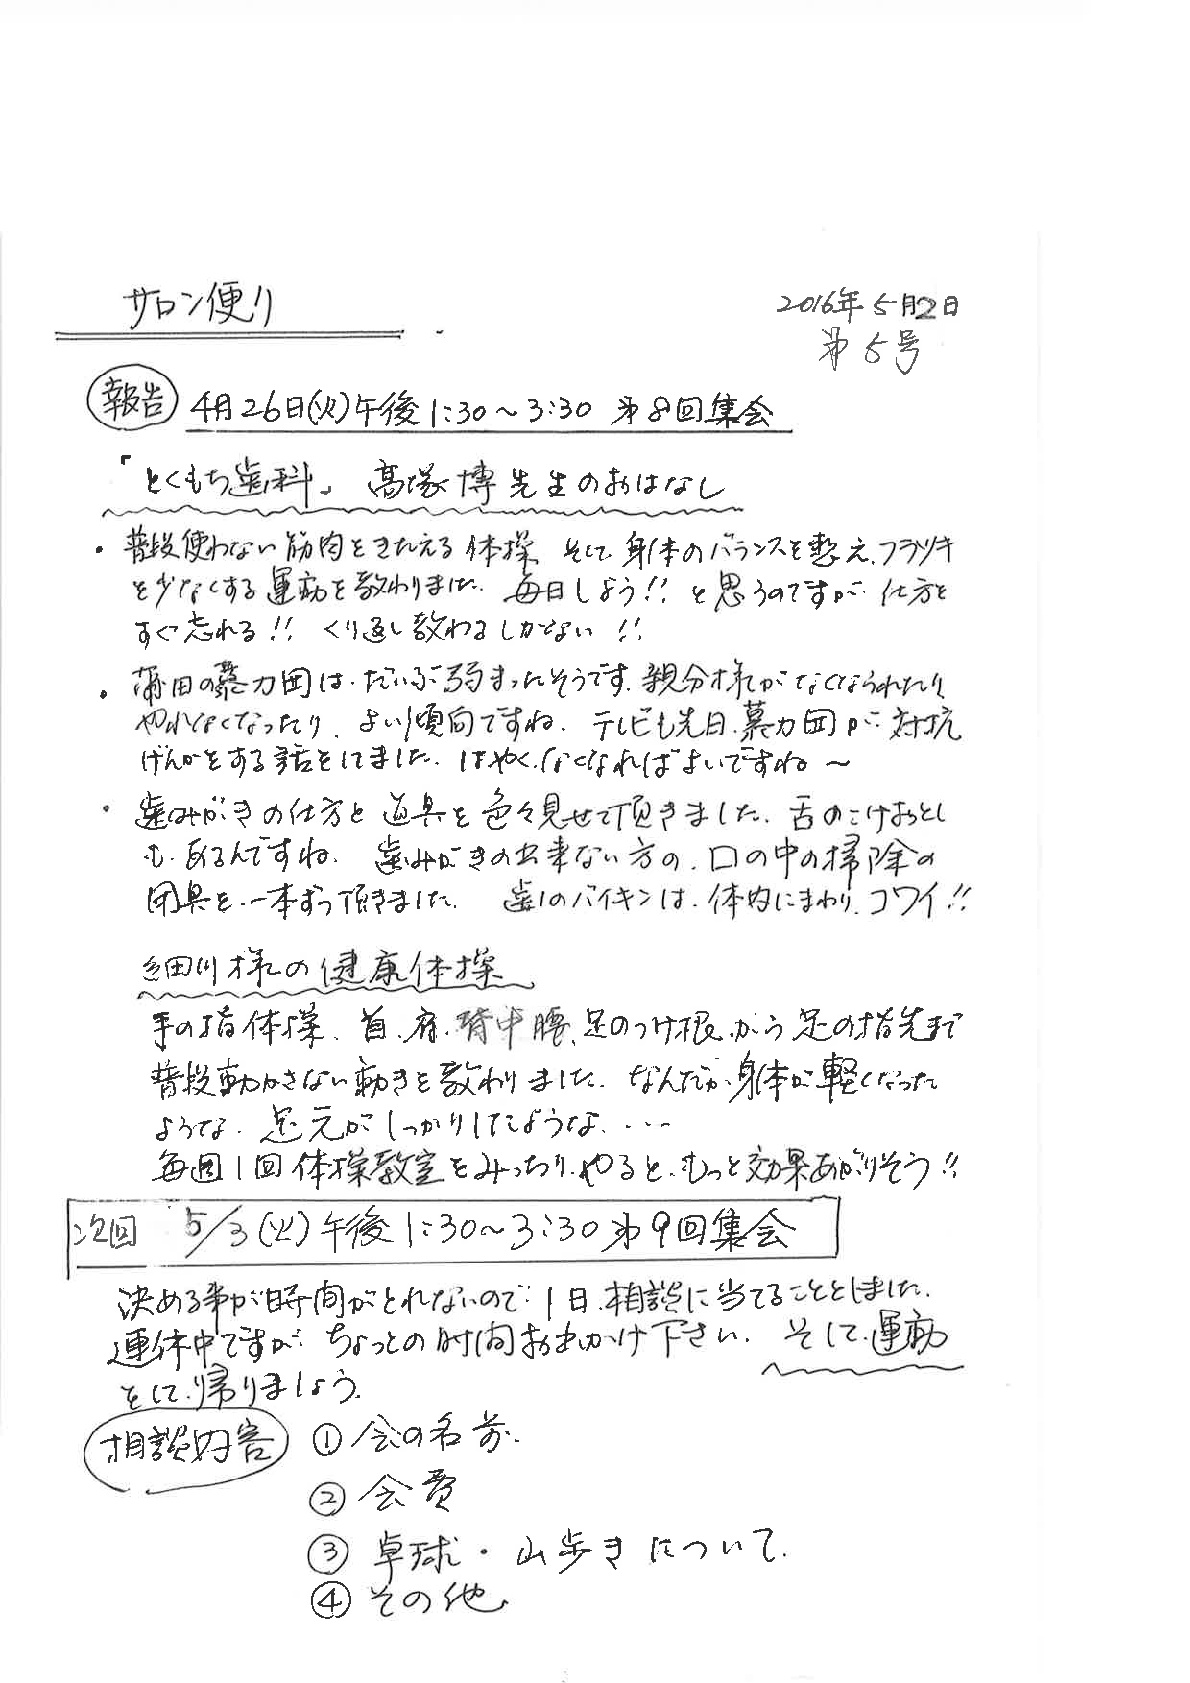 サロン便り
2016年5月2日
第5号
報告 4月26日(火)午後1:30～3:30 第8回集会
「とくもち歯科」 髙塚博先生のおはなし
・普段使わない筋肉をきたえる体操 そして身体のバランスを整え、フラツキ
を少なくする運動を教わりました。毎日しよう!! と思うのですが 仕方を
すぐ忘れる!! くり返し教わるしかない!!
・蒲田の暴力団は、だいぶ弱まったそうです。親分様がなくなられたり
やれなくなったり、よい傾向ですね。テレビも先日、暴力団が対抗
げんかをする話をしてました。はやくなくなればよいですね～
・歯みがきの仕方と道具を色々見せて頂きました。舌のこけおとし
も、あるんですね。歯みがきの出来ない方の、口の中の掃除の
用具を、一本ずつ頂きました。歯のバイキンは、体内にまわり、コワイ!!
細川様の健康体操
手の指体操、首、肩、背中腰、足のつけ根、から足の指先まで
普段動かさない動きを教わりました。なんだか身体が軽くなった
ような、足元がしっかりしたような、・・・
毎週1回体操教室をみっちりやると、もっと効果あがりそう!!
次回 5/3(火)午後1:30～3:30第9回集会
決める事が時間がとれないので、1日、相談に当てることとしました。
連休中ですが、ちょっとの時間お出かけ下さい。そして、運動
をして、帰りましょう。
相談内容 ①会の名前.
②会費
③卓球・山歩きについて.
④その他